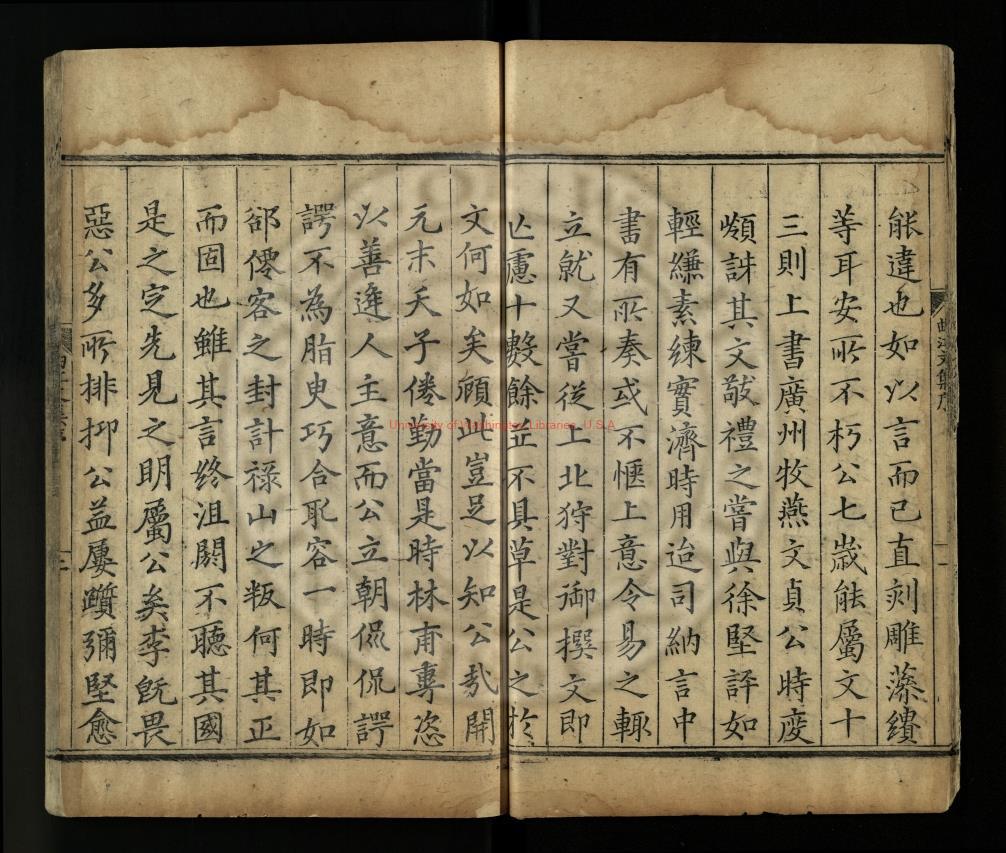 能違也如以言而已直刻雕藻繢
等耳安所不朽公七歲能屬文十
三則上書廣州牧燕文貞公時度
嶺訝其文敬禮之嘗與徐堅評如
輕縑素練實濟時用迨司納言中
書有所奏或不愜上意令易之輒
立就又嘗從上北狩對御撰文即
亾慮十數餘並不具草是公之於
文何如矣顧此豈足以知公哉開
元末天子倦勤當是時林甫專恣
以善逢人主意而公立朝侃侃諤
諤不為脂臾巧合取容一時即如
郤僊客之封計祿山之叛何其正
而固也雖其言終沮閼不聽其國
是之定先見之明屬公矣李旣畏
惡公多所排抑公益屢躓彌堅愈
曲江文集序
一
二
University of Washington Libraries, U.S.A